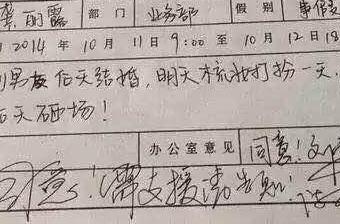 龚丽霞 部门 业务部 假别 事假
2014年10月11日9:00至10月12日18
男友后天结婚,明天梳妆打扮一天,
后天砸场!
办公室意见 同意!
同意!需支援请告知!